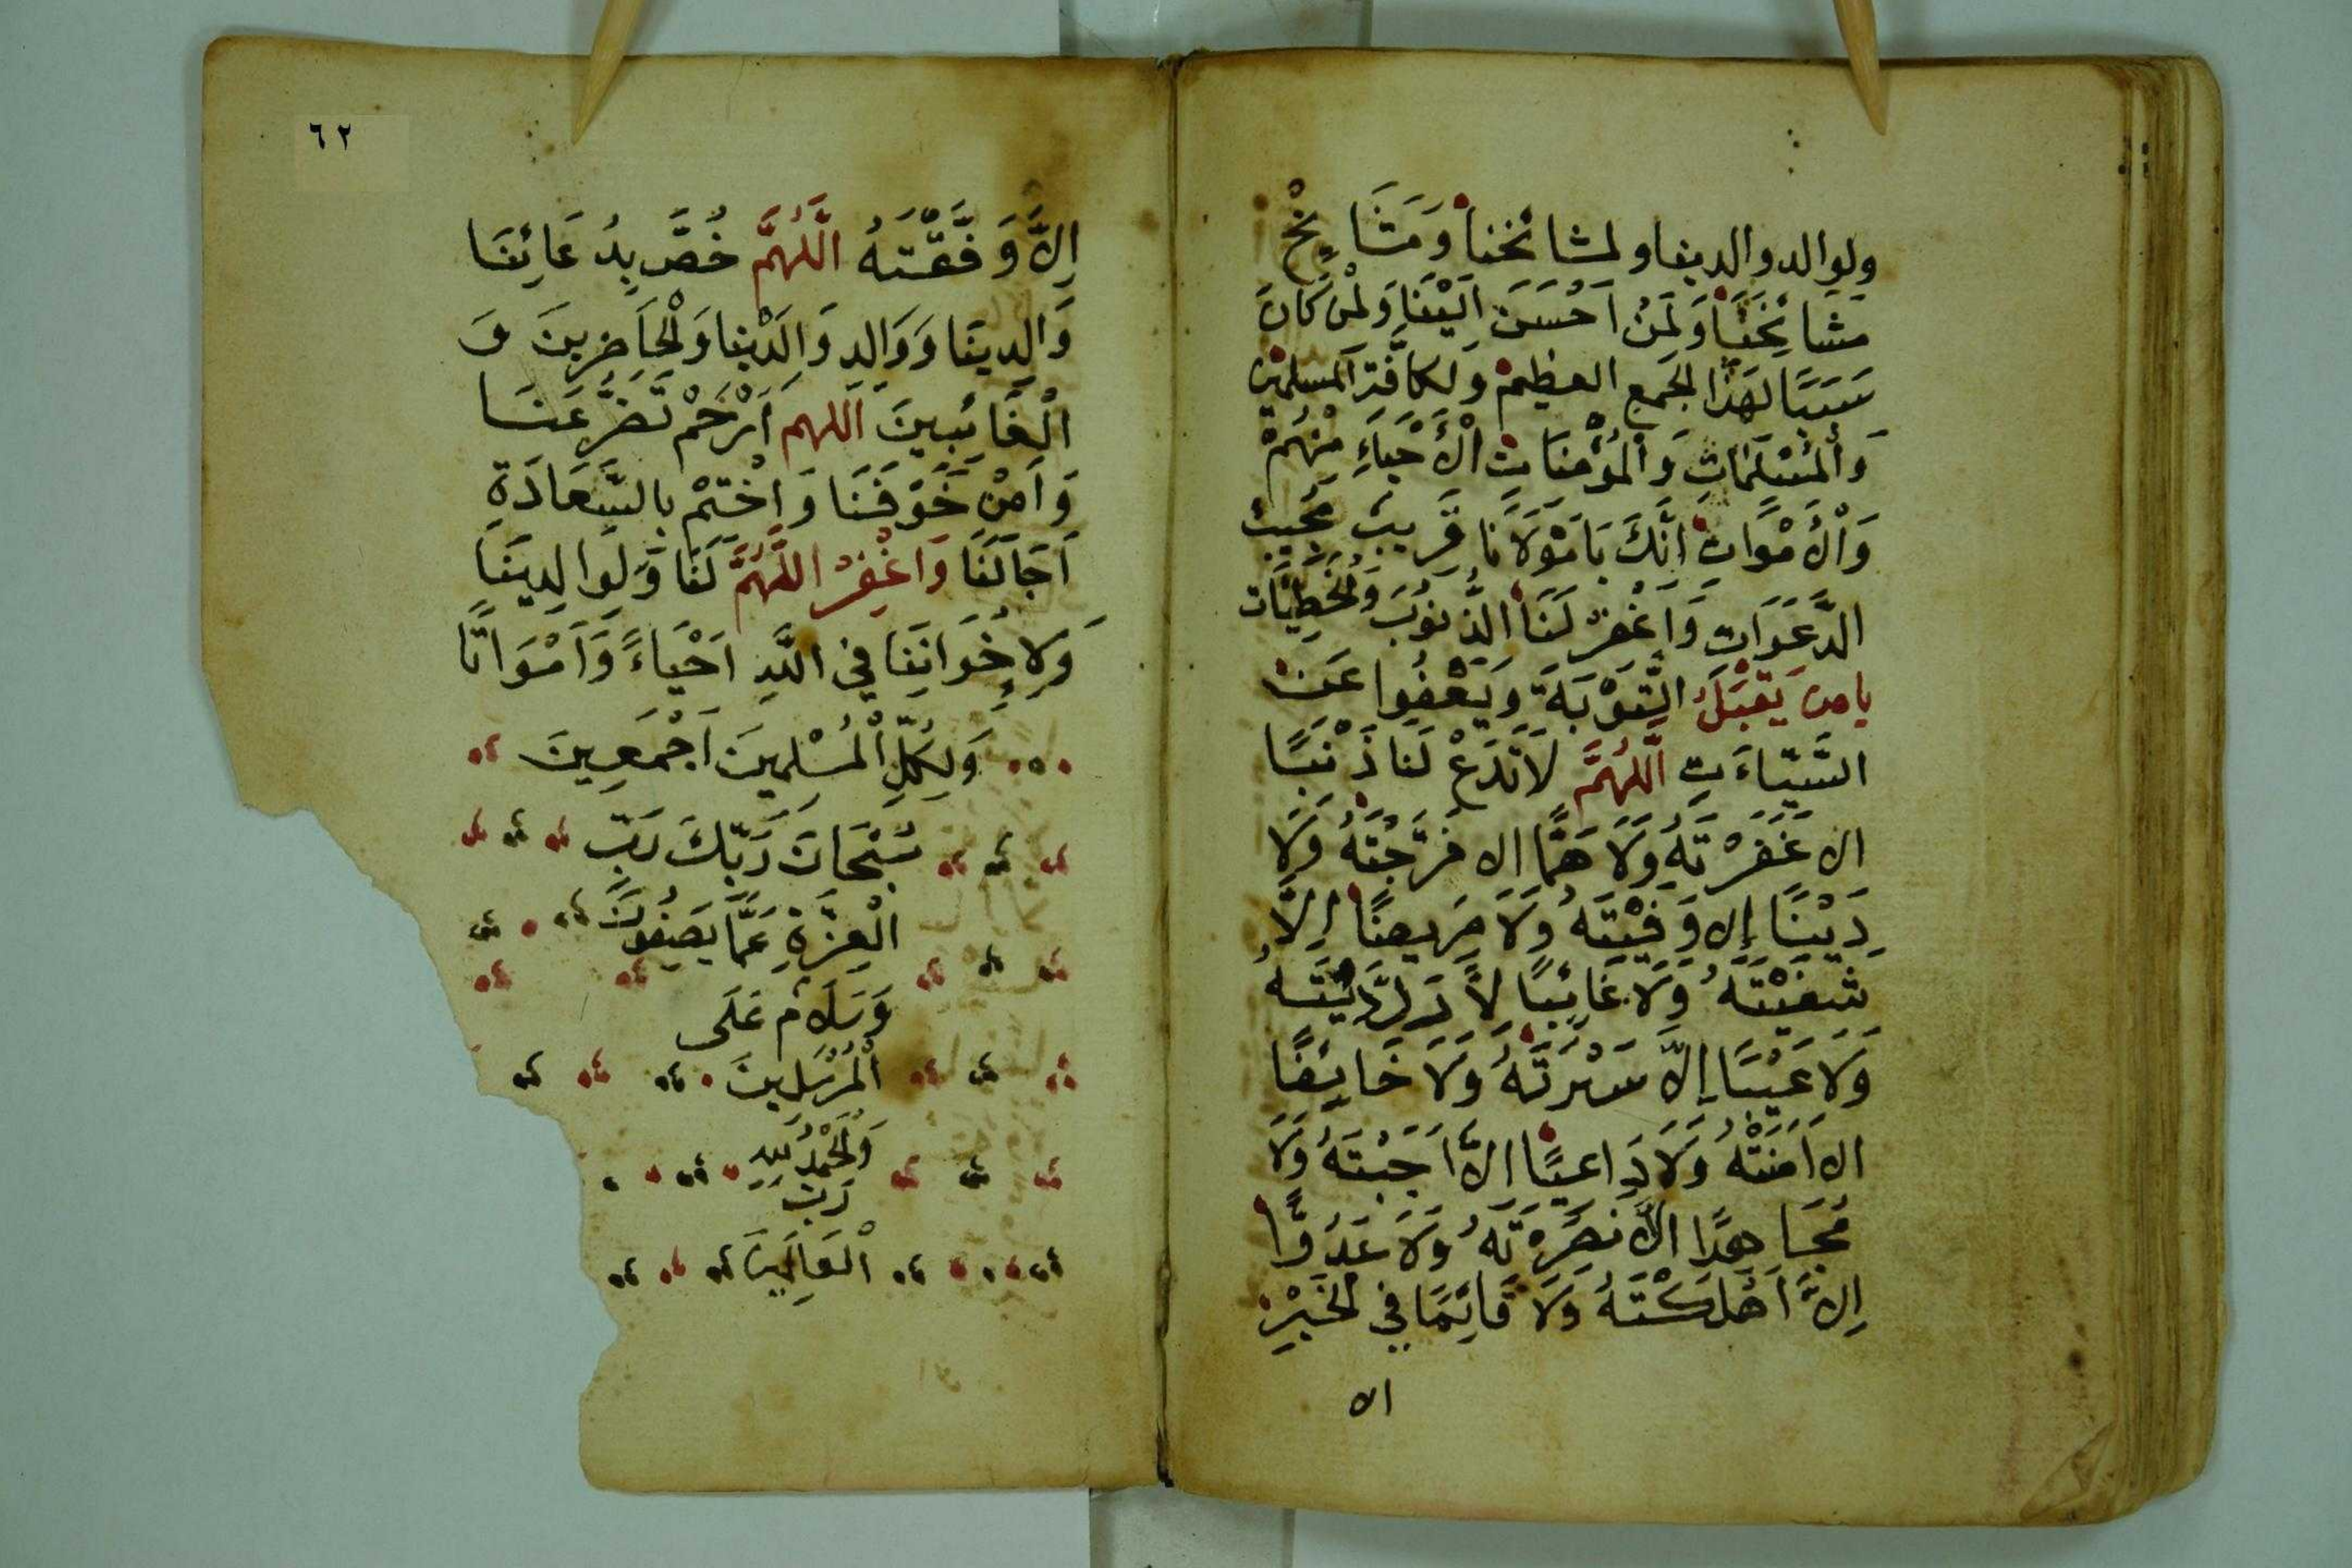 ولوالد والدينا ولمشائخنا وَمَشَايِخْ
مَشَائِخَنَا وَلِمَنْ اَحْسَنَ اِلَيْنَا وَلِمَن كَانَ
سَبَبًا لِهَذَا الجَمعِ العظيم وَلكافَّة المسلمين
وَالْمُسْلِمَاتِ وَالْمُؤْمِنَاتِ الْأَحْيَاءِ مِنْهُمْ
وَالْأَمْوَاتِ اِنَّكَ يَا مَوْلَانَا قَرِيبٌ مُجِيبُ
الدَّعَوَاتِ وَاغْفِرْ لَنَا الذُّنُوبَ وَالْخَطِيَّات
يا من يَقْبَلُ التَّوْبَةَ وَيَعْفُوا عَنْ
السَّيِّاءَتِ اَللَّهُمَّ لَا تَدَعْ لَنَا ذَنْبًا
الا غَفَرْتَهُ وَلَا هَمًّا الا فَرَّجْتَهُ وَلَا
دَيْنًا إِلا وَفَيْتَهُ وَلَا مَرِيضًا اِلَّا
شَفَيْتَهُ وَلَا غَائِبًا لاَّ رَدَيْتَهُ
وَلَا عَيْبًا إِلاَّ سَتَرْتَهُ وَلَا خَايِفًا
الا اَمَنْتَهُ وَلَا دَاعِيًا الاَّ اَجَبْتَهُ وَلَا
مُجَاهِدًا الاَّ نَصَرْتَهُ وَلَا عَدُوًّا
اِلاَّ اَهْلَكْتَهُ وَلَا قَائِمًا فِي الْخَيْرِ
الا
٦٢
اِلاَّ وَفَّقْتَهُ اَللَّهُمَّ خُصَّ بِدُعَائِنَا
وَالِدِينَا وَوَالِدِ وَالِدَيْنَا وَالْحَاضِرِينَ وَ
الْغَائِبِينَ اللهم اَرْحَمْ تَضَرُّعَنَا
وَاَمِنْ خَوْفَنَا وَاخْتِمْ بِالسَّعَادَةِ
اَجَالَنَا وَاغْفِرْ اللَّهُمَّ لَنَا وَلِوالِدِينَا
وَلِإِخْوَانِنَا فِي اللَّهِ اَحْيَاءً وَاَمْوَاتًا
وَلِكُلِّ الْمُسْلِمِينَ اَجْمَعِينَ
سُبْحَانَ رَبِّكَ رَبِّ
الْعِزَّةِ عَمَّا يَصِفُونَ
وَسَلَامٌ عَلَى
الْمُرْسَلِينَ
وَالْحَمْدُ لِلَّهِ
رَبِّ
الْعَالَمِينَ